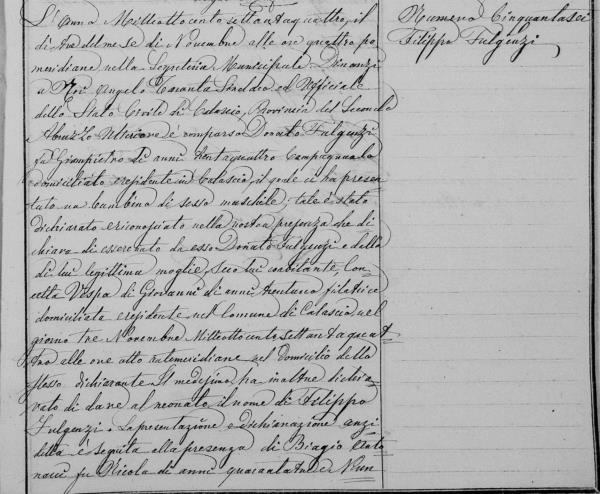 L'Anno Milleottocento settantaquattro, il
dì tre del mese di Novembre alle ore quattro po
meridiane nella Segreteria Municipale. Dinanzi
a Noi Angelo Taranta Sindaco ed Uffiziale
dello Stato Civile di Calascio, Provincia del Secondo
Abruzzo Ulteriore è comparso Donato Fulgenzi
fu Giampietro di anni trentaquattro Campagnuolo
domiciliato e residente in Calascio, il quale ci ha presen
tato un bambino di sesso maschile; tale è stato
dichiarato e riconosciuto nella nostra presenza che di
chiara di esser nato da esso Donato Fulgenzi e dalla
di lui legittima moglie, seco lui coabitante, Con
cetta Vespa di Giovanni di anni trentuno filatrice
domiciliata e residente nel Comune di Calascio, nel
giorno tre Novembre Milleottocento Settantaquat
tro alle ore otto antemeridiane nel domicilio dello
stesso dichiarante. Il medesimo ha inoltre dichia
rato di dare al neonato il nome di Filippo
Fulgenzi. La presentazione e dichiarazione anzi
detta è seguita alla presenza di Biagio
fu Nicola di anni
Numero Cinquantasei
Filippo Fulgenzi